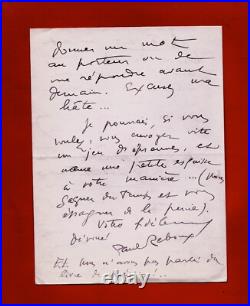 donner un mot
au porteur ou de
me répondre avant
demain. Excusez ma
hâte...
Je pourrais, si vous
voulez, vous envoyer vite
un jeu d'épreuves, et
même une petite esquisse
à votre manière... (pour
gagner du temps et vous
épargner de la peine).
Votre fidèlement
dévoué
Paul Reboux
Et nous n'avons pas parlé du
livre de